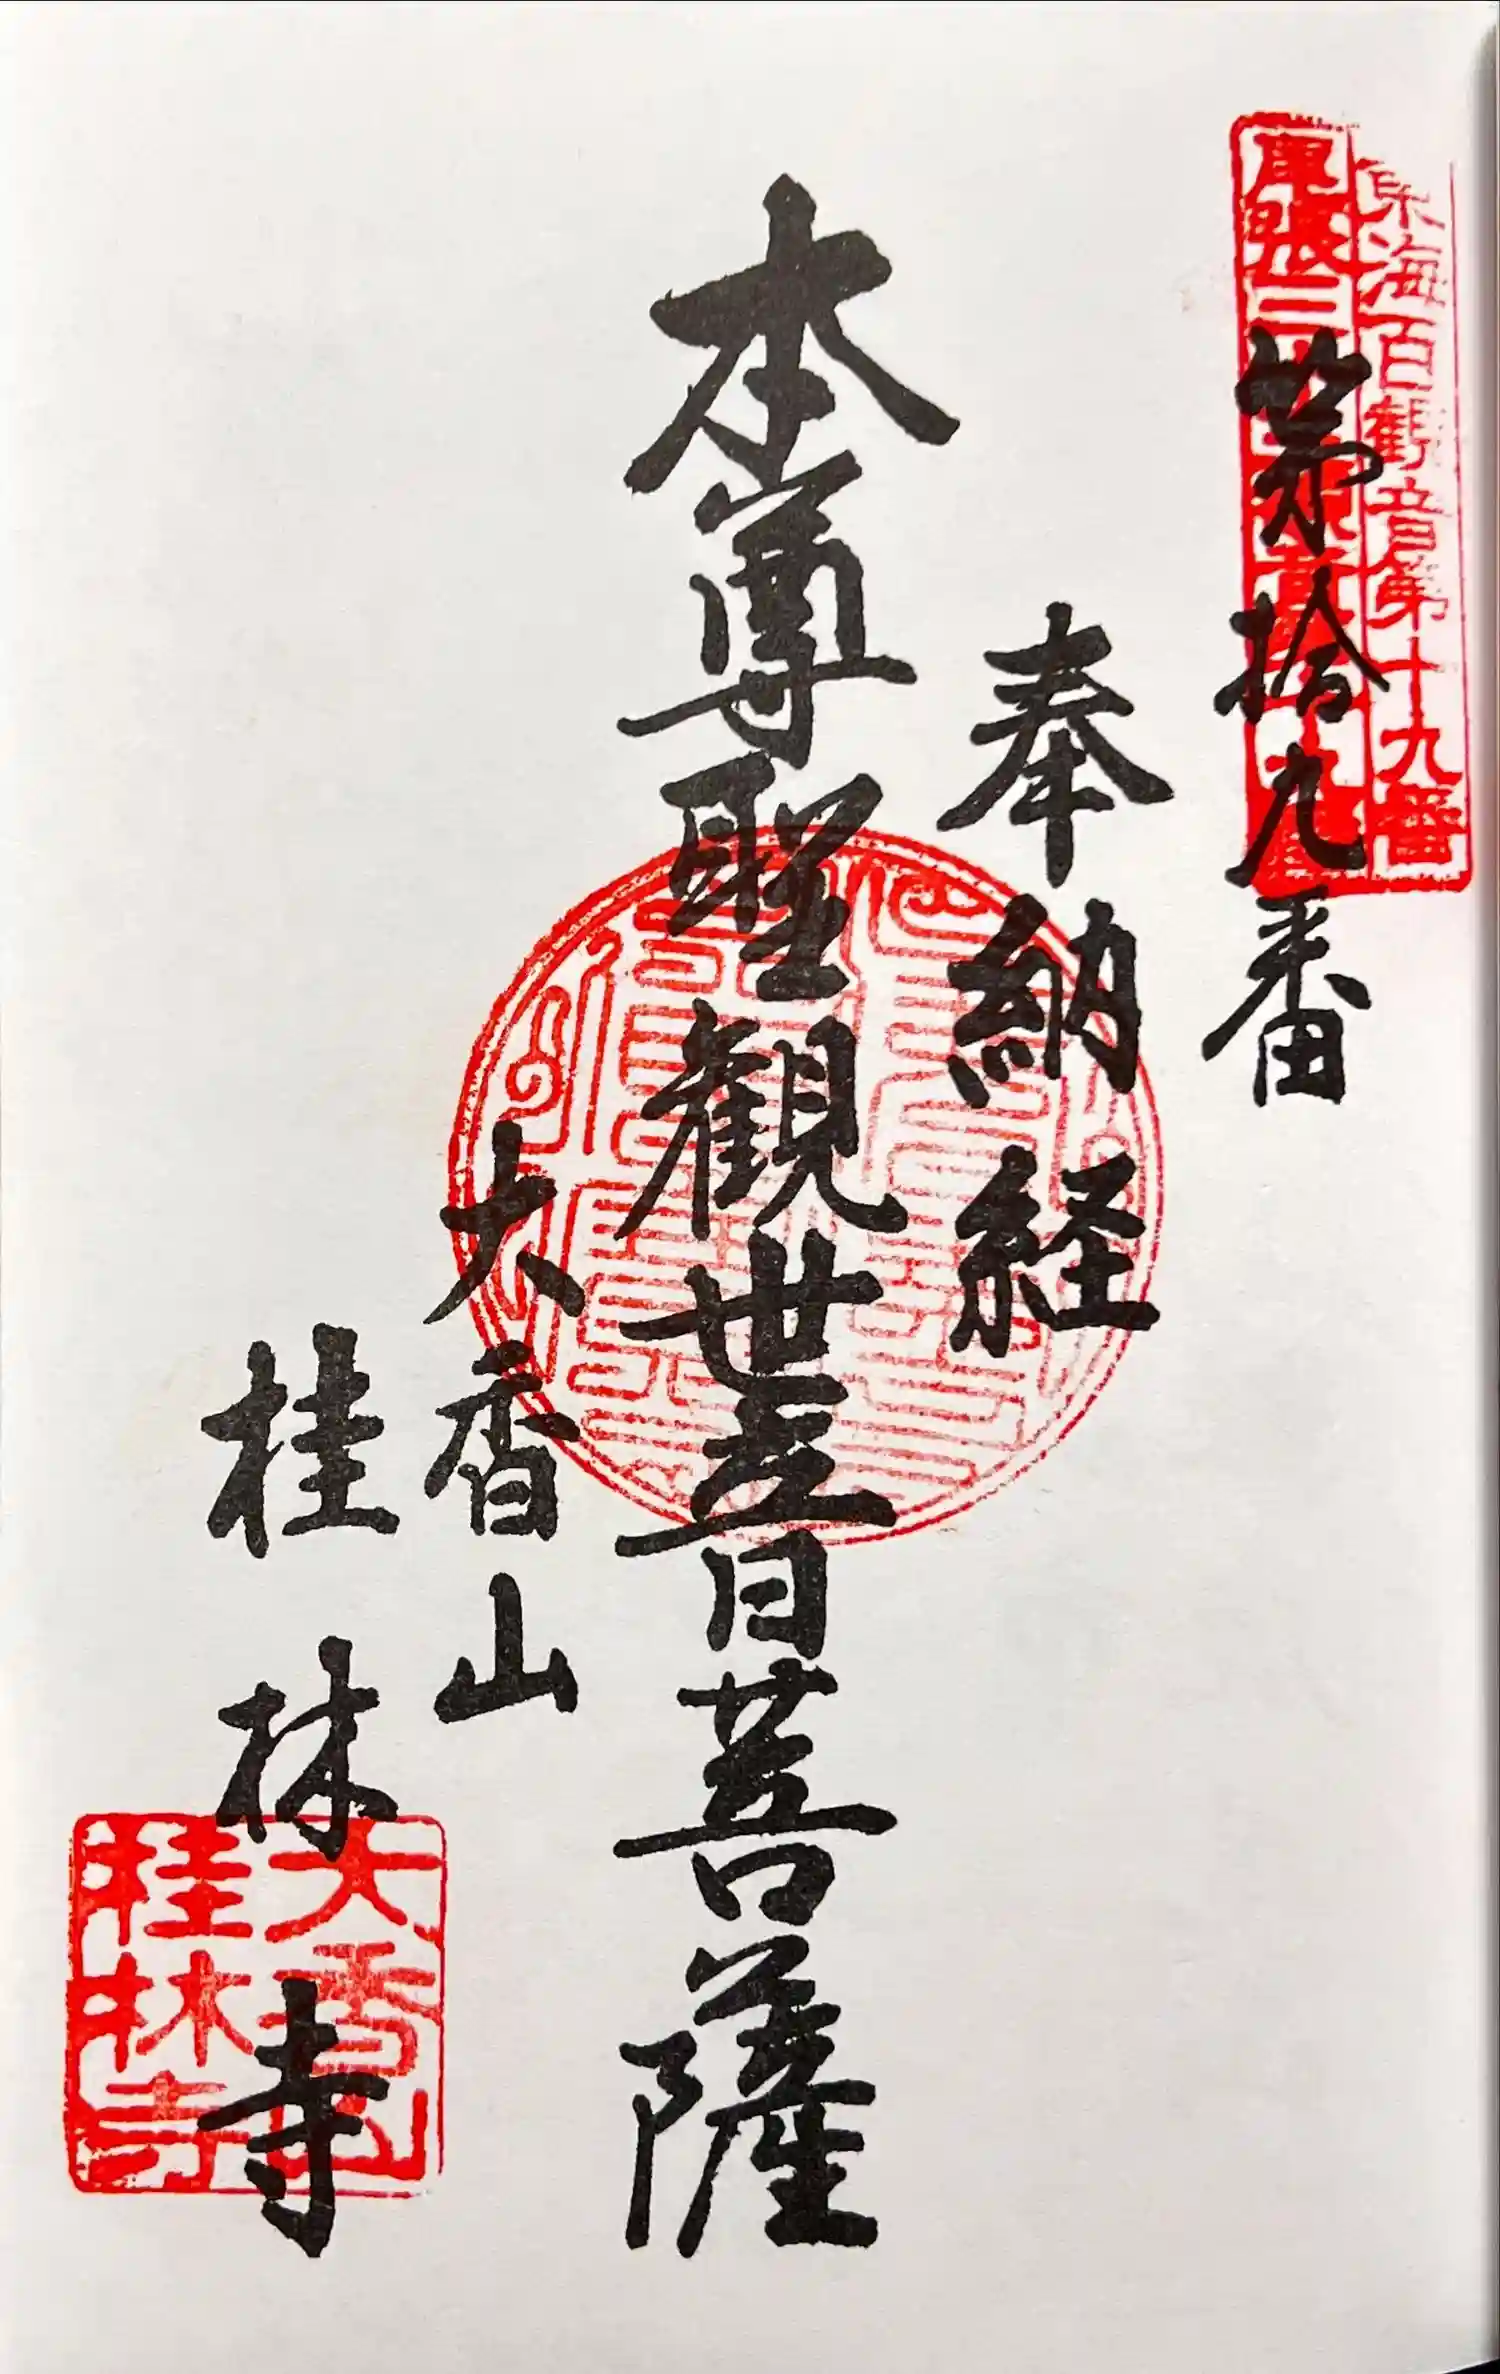 東海百観音第十九番
尾張三
第拾九番
奉納経
本尊聖観世音菩薩
大香山
桂林寺
大香山
桂林寺